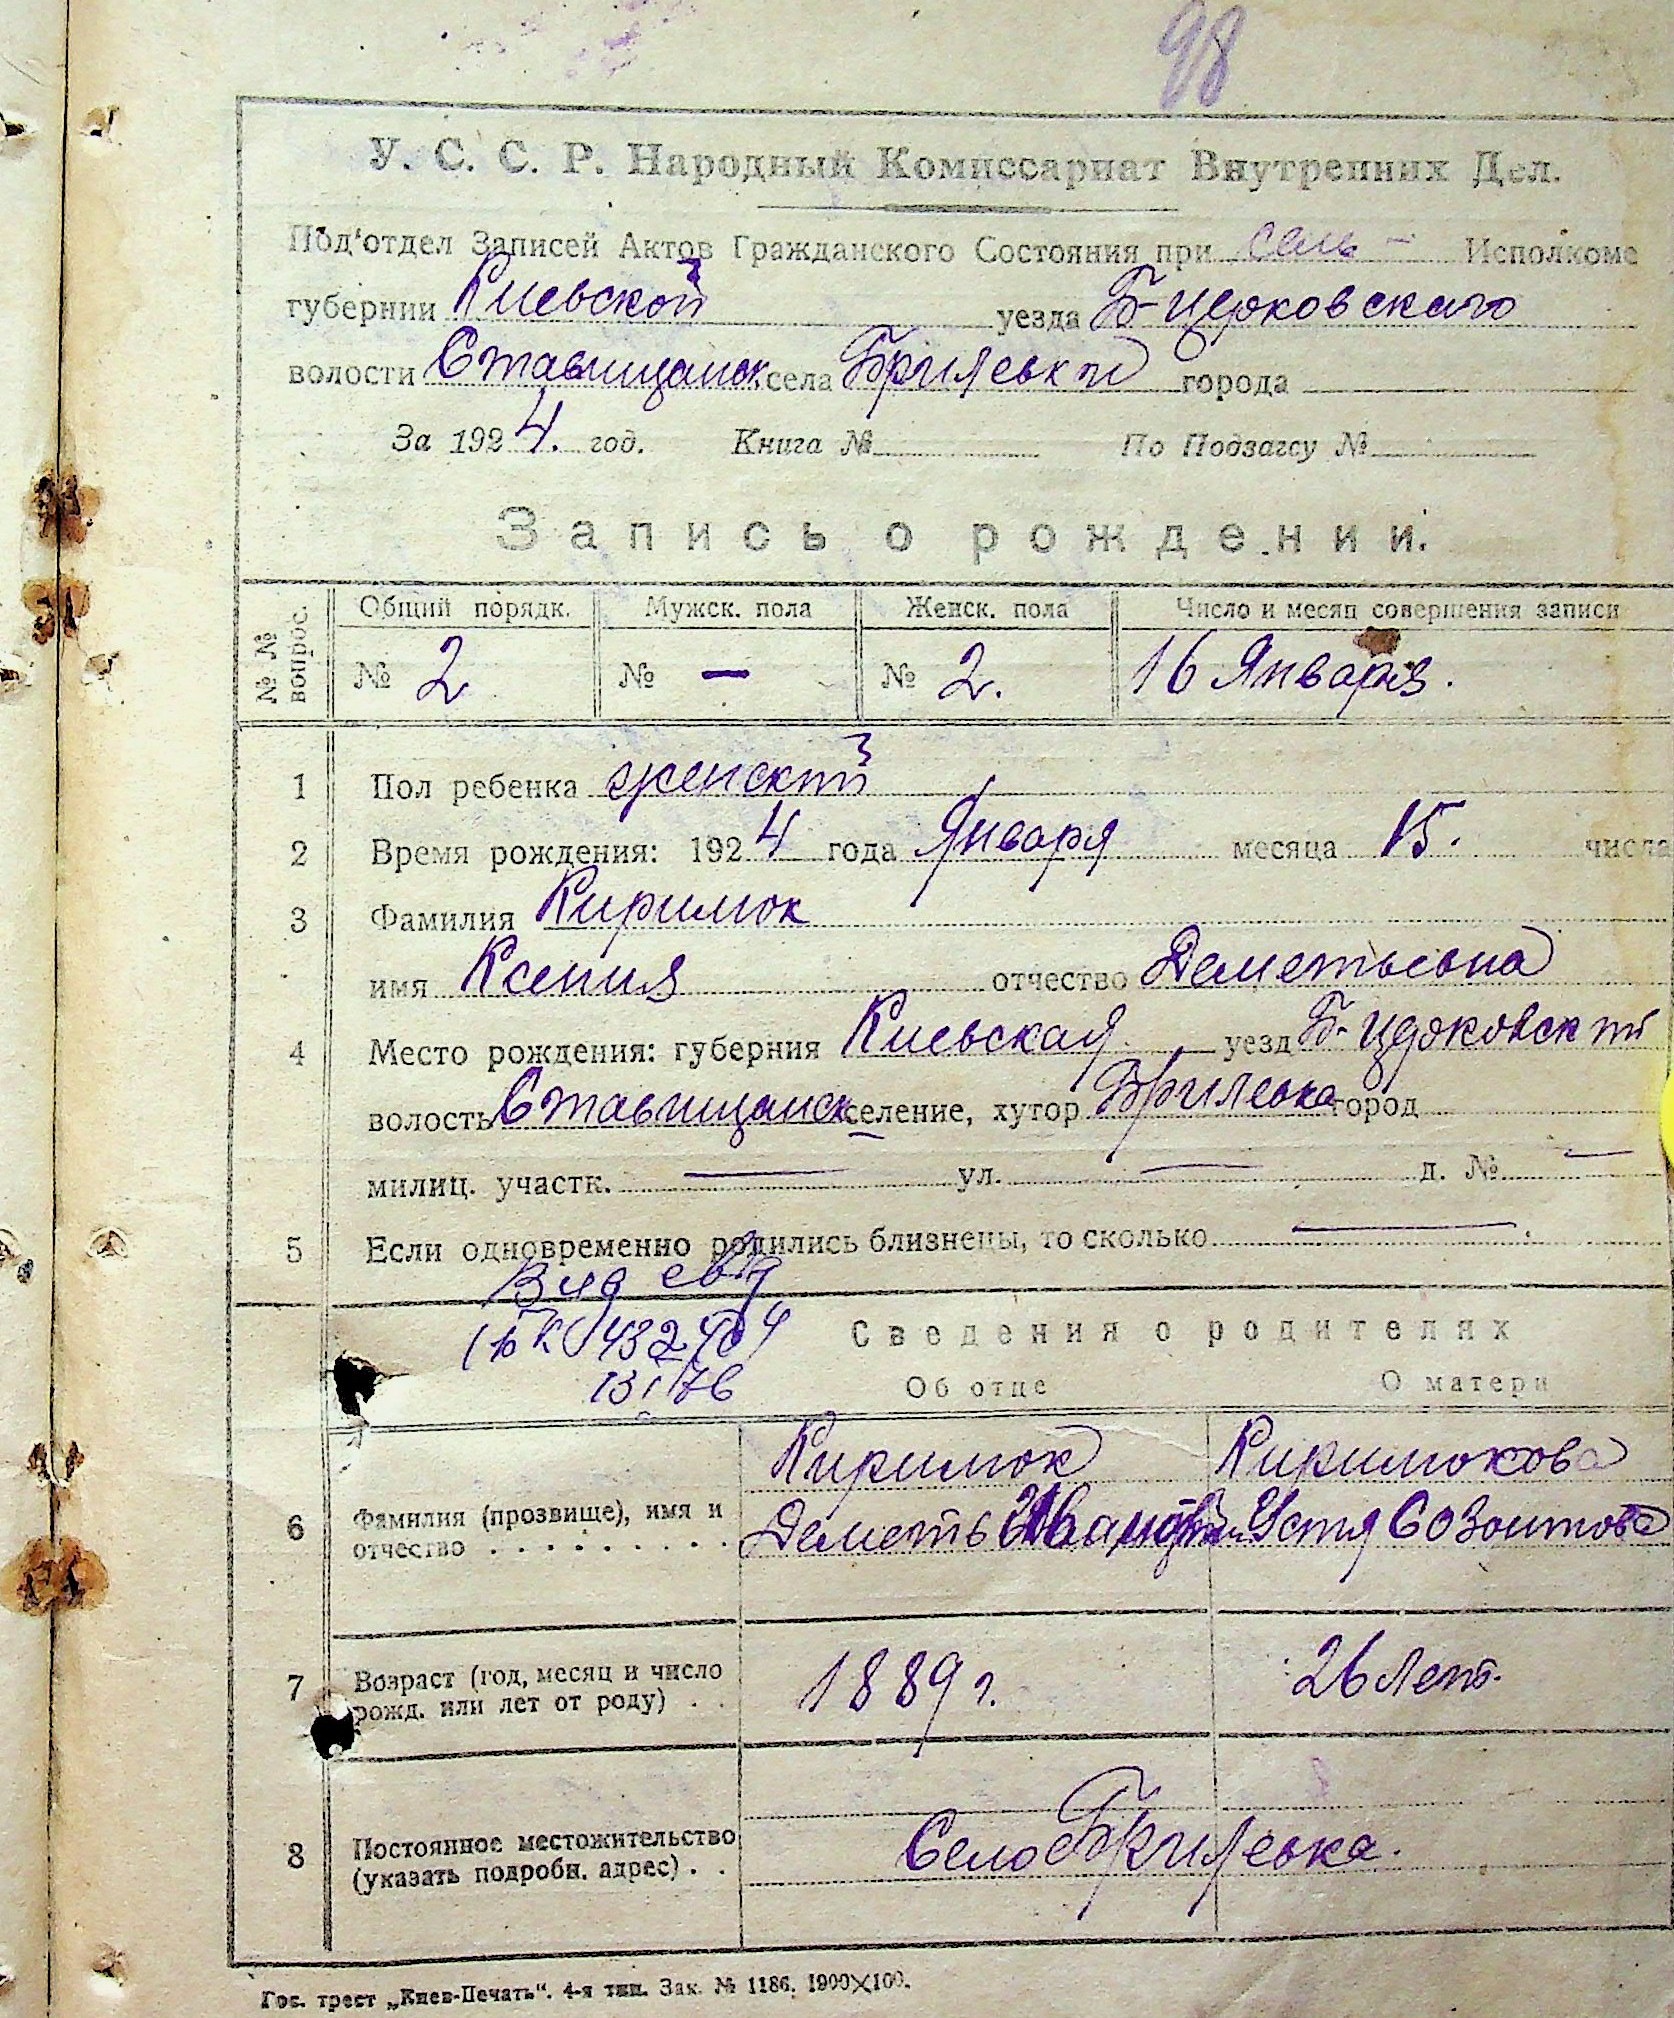 98
У. С. С. Р. Народный Комиссариат Внутренних Дел.
Под'отдел Записей Актов Гражданского Состояния при сель - Исполкоме
губернии Киевской уезда Б-церковского
волости Ставищанск. села Брилевки города
За 1924. год. Книга № По Подзагсу №
Запись о рождении.
№ № вопрос. Общий порядк. Мужск. пола Женск. пола Число и месяц совершения записи
№ 2 № — № 2. 16 Января.
1 Пол ребенка женский
2 Время рождения: 1924 года Января месяца 15. числа
3 Фамилия Киримок
имя Ксения отчество Деметьевна
4 Место рождения: губерния Киевская уезд Б-церковский
волость Ставищанск селение, хутор Брилевка город
милиц. участк. — ул. — д. № —
5 Если одновременно родились близнецы, то сколько — .
Сведения о родителях
Об отце О матери
Киримок Киримокова
6 Фамилия (прозвище), имя и отчество . . . . . . . . . Деметь Устя Созонтова
7 Возраст (год, месяц и число рожд. или лет от роду) . . 1889 г. 26 лет.
8 Постоянное местожительство (указать подробн. адрес) . . Село Брилевка.
Гос. трест „Киев-Печать“. 4-я тип. Зак. № 1186. 1900×100.